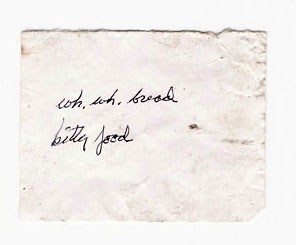 wh. wh. bread
kitty food